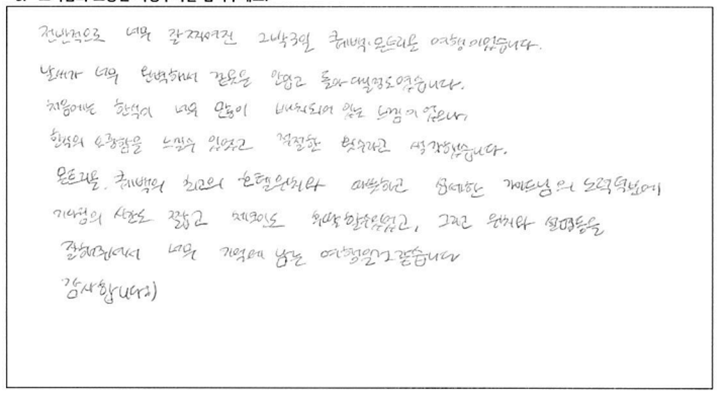 전반적으로 너무 잘 짜여진 2박3일 퀘백·몬트리올 여행이었습니다.
날씨가 너무 완벽해서 겉옷을 안입고 돌아다닐정도였습니다.
처음에는 한식이 너무 많이 배치되어 있는 느낌이었으나,
한식의 소중함을 느낄수 있었고 적절한 횟수라고 생각했습니다.
몬트리올, 퀘백의 최고의 호텔위치와 따뜻하고 섬세한 가이드님의 노력덕분에
기다림의 시간도 짧고 체크인도 할수있었고, 그리고 위치와 설명등을
잘해줘서 너무 기억에 남는 여행일것 같습니다
감사합니다:)